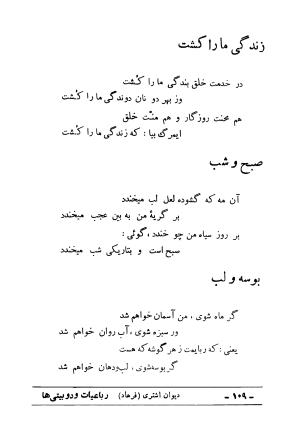 زندگی ما را کشت
در خدمت خلق بندگی ما را کشت
وز بهر دو نان دوندگی ما را کشت
هم محنت روزگار و هم منّت خلق
ایمرگ بیا : که زندگی ما را کشت
صبح و شب
آن مه که گشوده لعل لب میخندد
بر گریهٔ من به بین عجب میخندد
بر روز سیاه من چو خندد ، گوئی :
صبح است و بتاریکی شب میخندد
بوسه و لب
گر ماه شوی ، من آسمان خواهم شد
ور سبزه شوی ، آب روان خواهم شد
یعنی : که ربایمت ز هر گوشه که هست
گر بوسه شوی ، لب و دهان خواهم شد
- ۱۰۹ - دیوان اشتری (فرهاد) رباعیات و دوبیتی‌ها